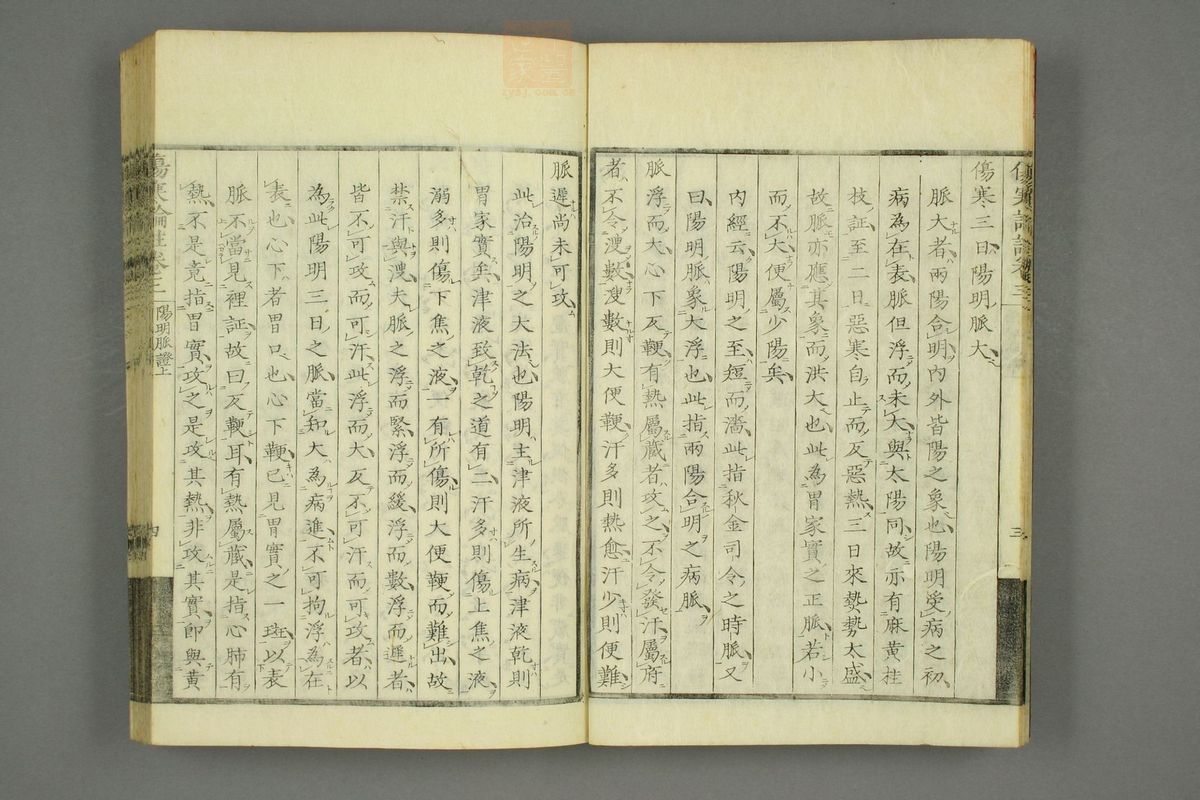 傷寒三日陽明脈大
脈大者兩陽合明內外皆陽之象也陽明受病之初
病為在表脈但浮而未大與太陽同故亦有麻黃桂
枝証至二日惡寒自止而反惡熱三日來勢太盛
故脈亦應其象而洪大也此為胃家實之正脈若小
而不大便屬少陽矣
內經云陽明之至短而濇此指秋金司令之時脈又
曰陽明脈象大浮也此指兩陽合明之病脈
脈浮而大心下反鞕有熱屬藏者攻之不令發汗屬府
者不令溲數溲數則大便鞕汗多則熱愈汗少則便難
脈遲尚未可攻
此治陽明之大法也陽明主津液所生病津液乾則
胃家實矣津液致乾之道有二汗多則傷上焦之液
溺多則傷下焦之液一有所傷則大便鞕而難出故
禁汗與溲夫脈之浮而緊浮而緩浮而數浮而遲者
皆不可攻而可汗此浮而大反不可汗而可攻者以
為此陽明三日之脈當知大為病進不可拘浮為在
表也心下者胃口也心下鞕已見胃實之一斑以表
脈不當見裡証故曰反鞕耳有熱屬藏是指心肺有
熱不是竟指胃實攻之是攻其熱非攻其實即與黃
陽明脈證上
三
四